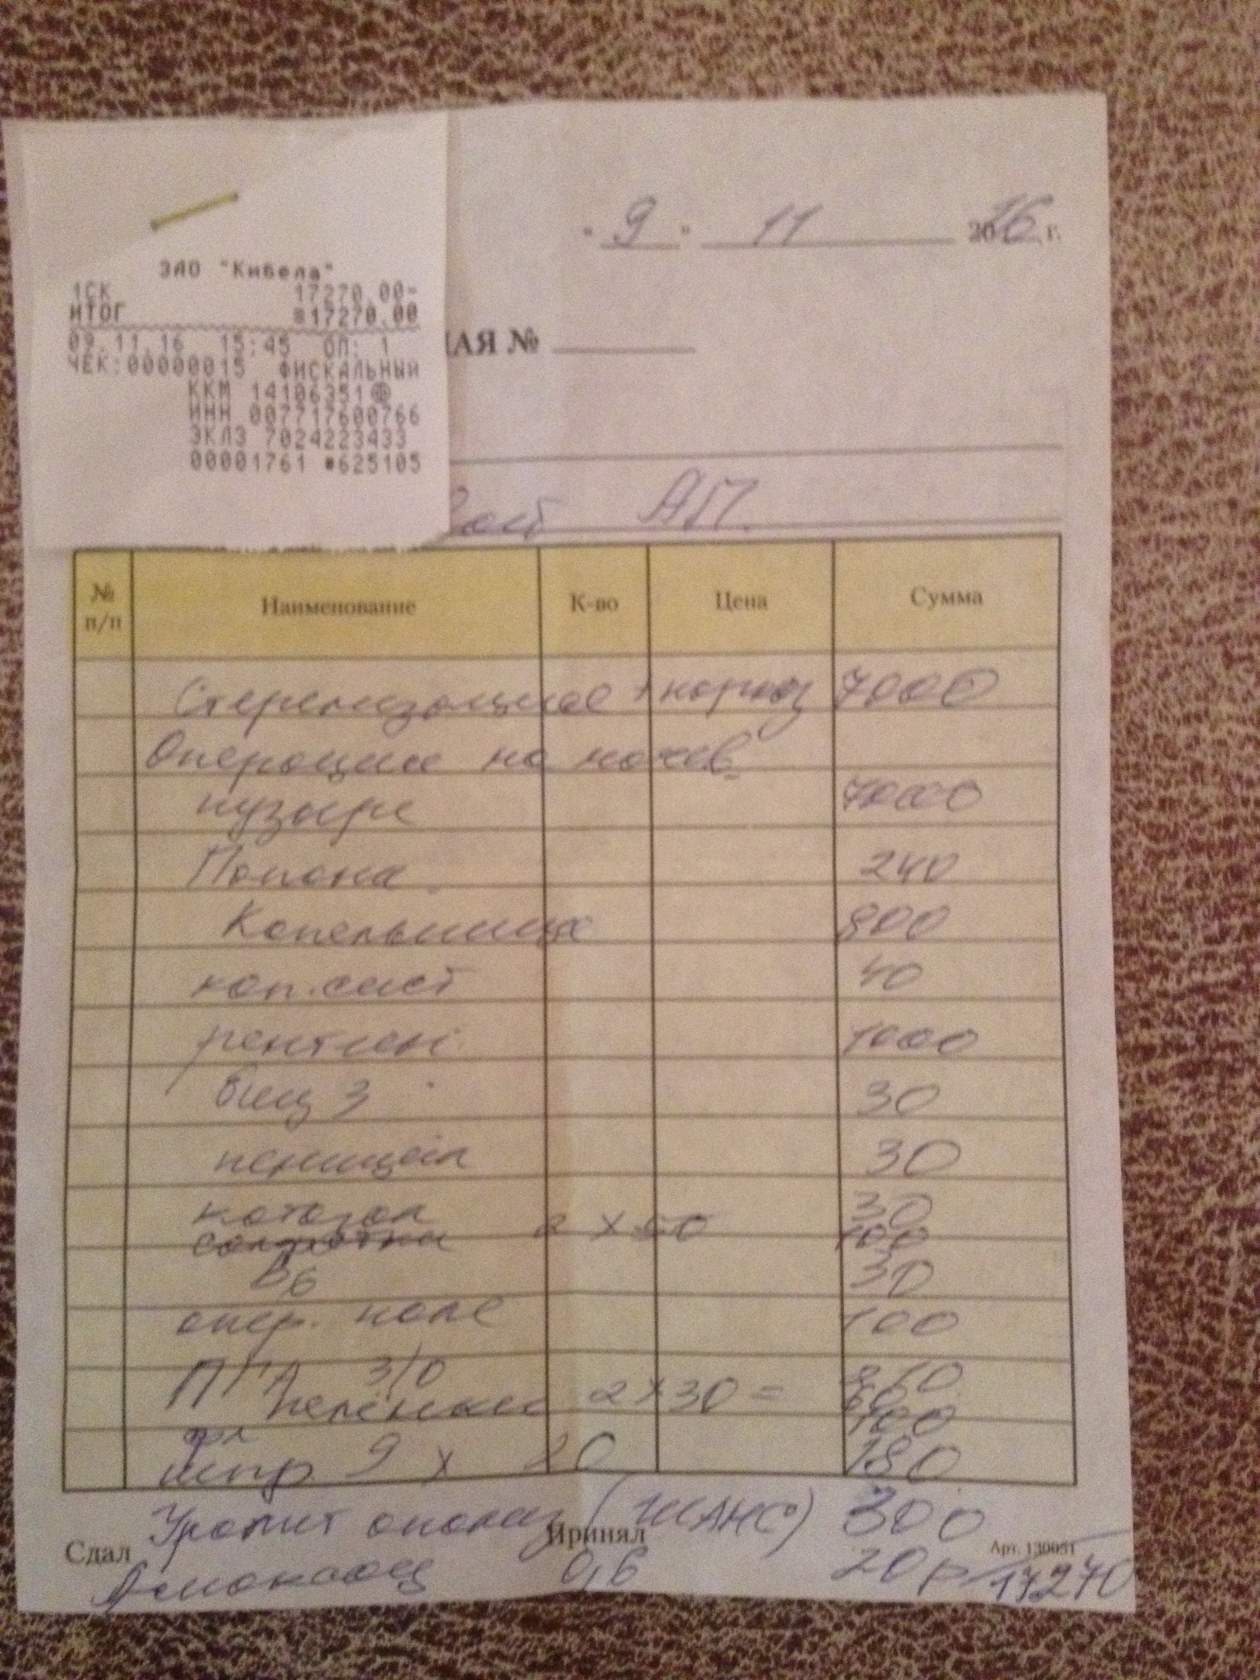 " 9 " 11 2016 г.
ЗАО "Кибела"
1СК 17270.00-
ИТОГ ≡17270.00
09.11.16 15:45 ОП: 1
ЧЕК:00000015 ФИСКАЛЬНЫЙ
ККМ 14106351
ИНН 007717600766
ЭКЛЗ 7024223433
00001761 #625105
АЯ №
АП.
№ п/п Наименование К-во Цена Сумма
Стерилизация + наркоз 7000
Операция на мочев.
пузыре 7000
Попона 240
Капельница 800
кап.сист 40
рентген 1000
биц 3 30
пеницил 30
катозал 30
2 х 50 100
В6 30
опер. поле 100
ПГА 3/0
Пелёнки 2 х 30 = 60
100
шпр 9 х 20 180
Уролит анализ (ШАНС) 300
Сдал Принял Арт. 130051
Амоксоиц 0,6 20р 17270